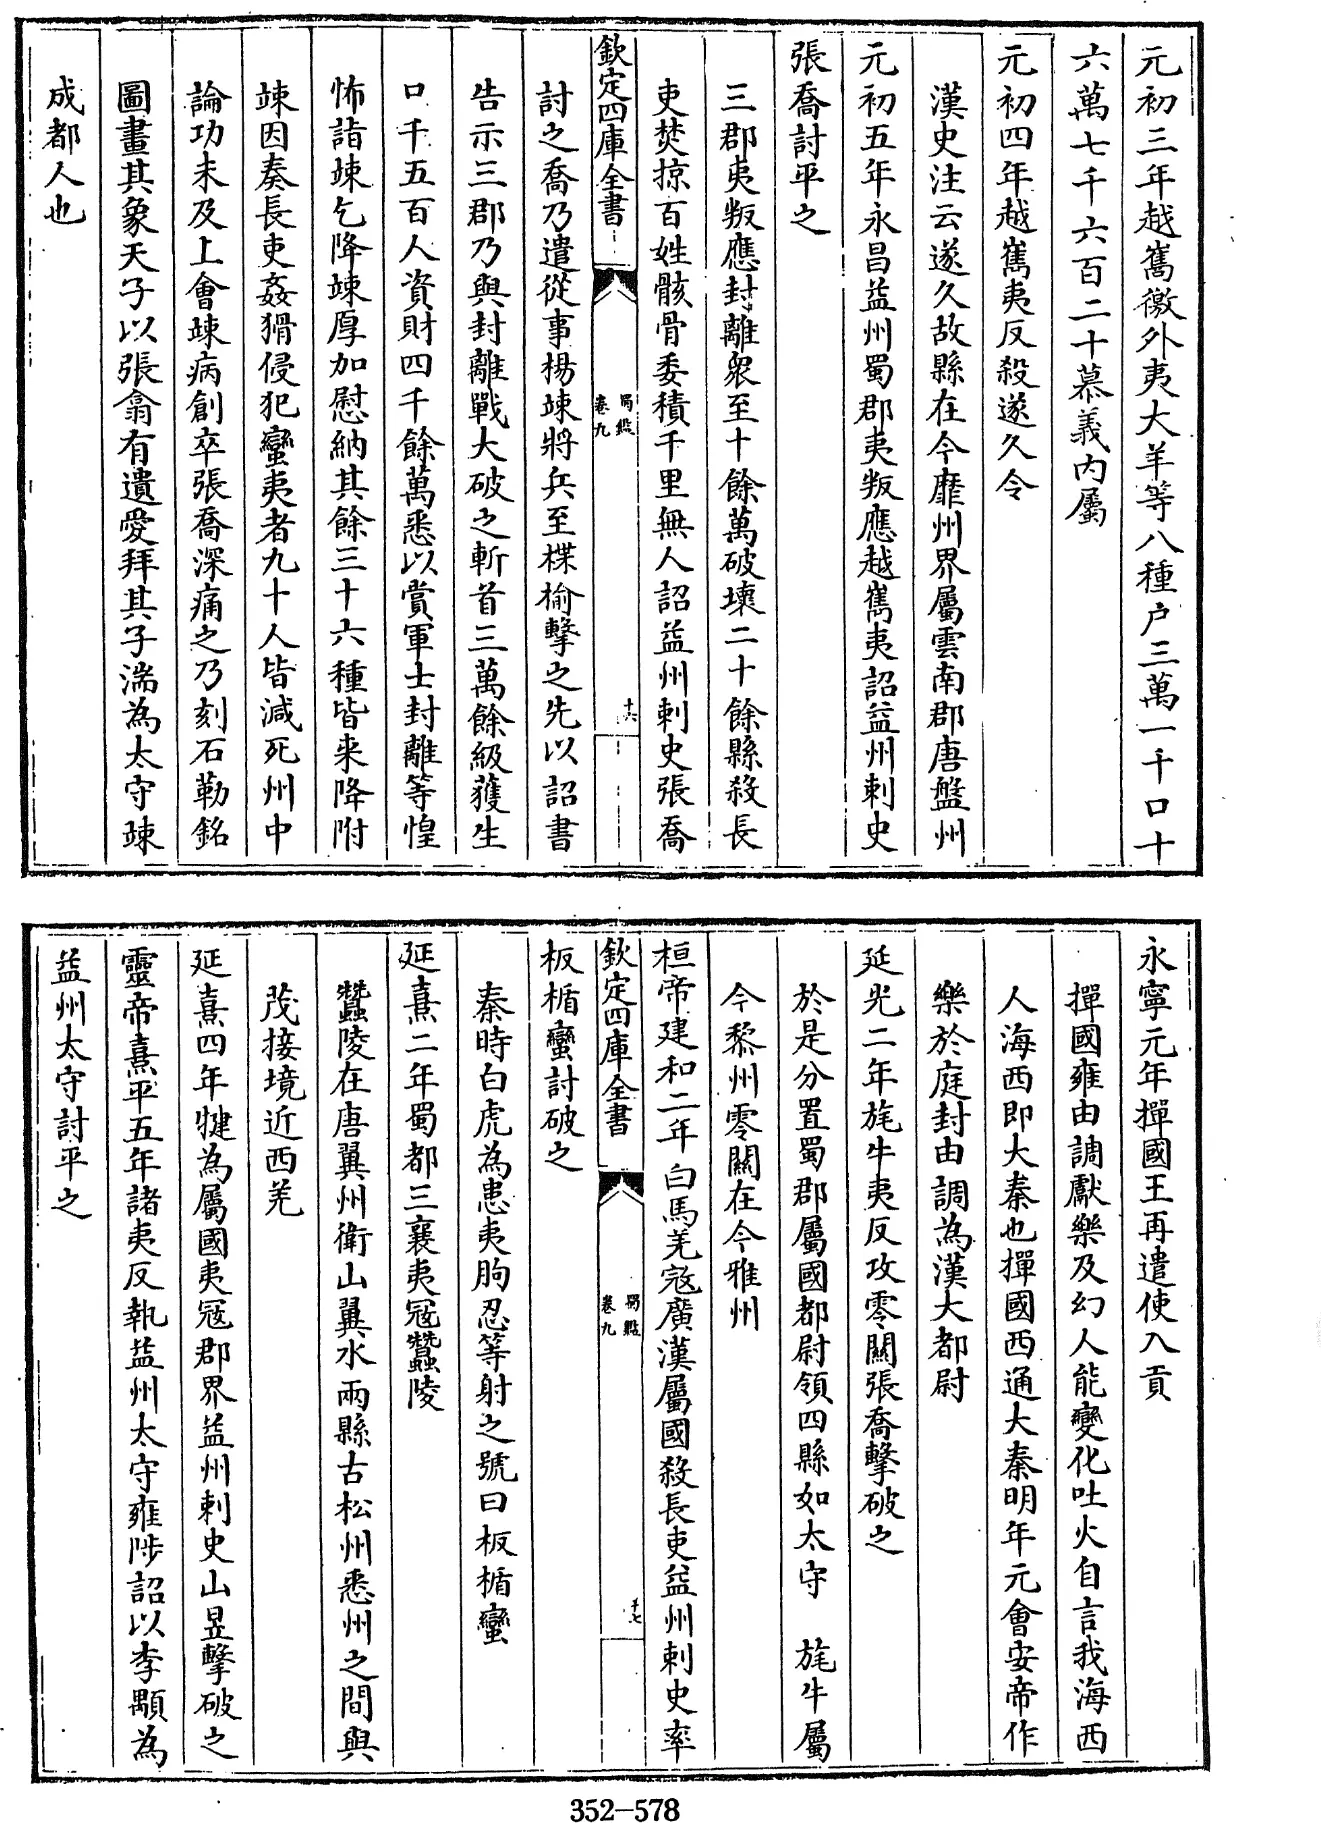 元初三年越嶲徼外夷大羊等八種户三萬一千口十
六萬七千六百二十慕義内屬
元初四年越嶲夷反殺遂久令
漢史注云遂久故縣在今靡州界屬雲南郡唐盤州
元初五年永昌益州蜀郡夷叛應越嶲夷詔益州刺史
張喬討平之
三郡夷叛應封離衆至十餘萬破壞二十餘縣殺長
吏焚掠百姓骸骨委積千里無人詔益州刺史張喬
欽定四庫全書
蜀鑑
卷九
十六
討之喬乃遣從事楊竦將兵至楪榆擊之先以詔書
告示三郡乃與封離戰大破之斬首三萬餘級獲生
口千五百人資財四千餘萬悉以賞軍士封離等惶
怖詣竦乞降竦厚加慰納其餘三十六種皆来降附
竦因奏長吏姦猾侵犯蠻夷者九十人皆減死州中
論功未及上會竦病創卒張喬深痛之乃刻石勒銘
圖畫其象天子以張翕有遺愛拜其子湍為太守竦
成都人也
永寧元年撣國王再遣使入貢
撣國雍由調獻樂及幻人能變化吐火自言我海西
人海西即大秦也撣國西通大秦明年元會安帝作
樂於庭封由調為漢大都尉
延光二年旄牛夷反攻零關張喬擊破之
於是分置蜀郡屬國都尉領四縣如太守　旄牛屬
今黎州零關在今雅州
桓帝建和二年白馬羌寇廣漢屬國殺長吏益州刺史率
欽定四庫全書
蜀鑑
卷九
十七
板楯蠻討破之
秦時白虎為患夷朐忍等射之號曰板楯蠻
延熹二年蜀都三襄夷寇蠶陵
蠶陵在唐翼州衛山翼水兩縣古松州悉州之間與
茂接境近西羌
延熹四年犍為屬國夷寇郡界益州刺史山昱擊破之
靈帝熹平五年諸夷反執益州太守雍陟詔以李顒為
益州太守討平之
352-578